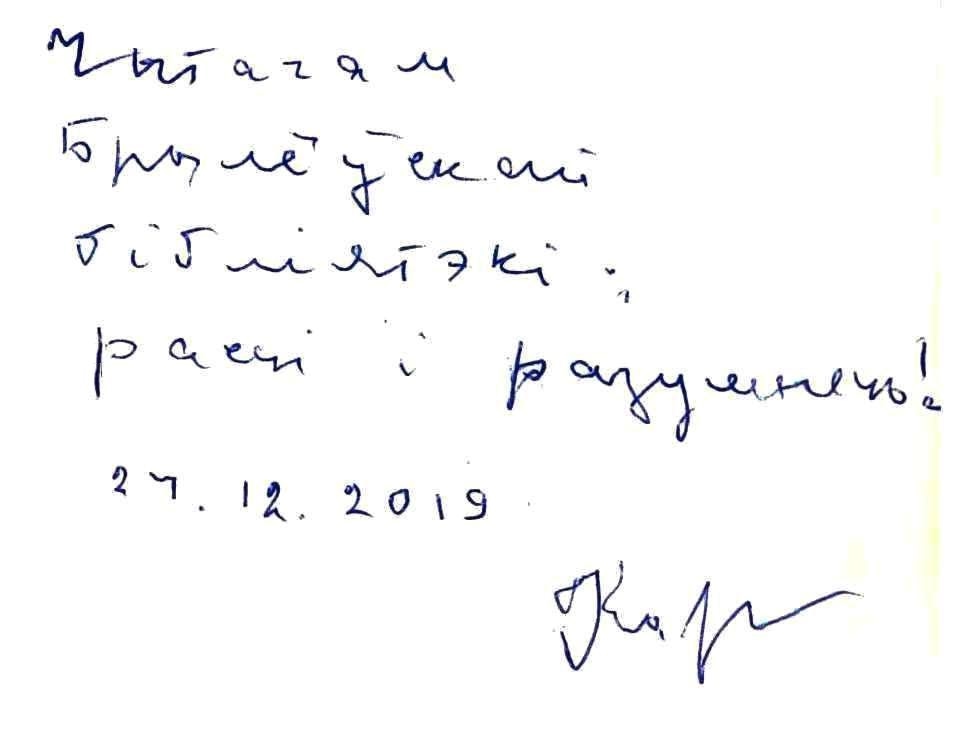 Чытачам
Брылёўскай
бібліятэкі:
расці і разумнець!
27.12.2019